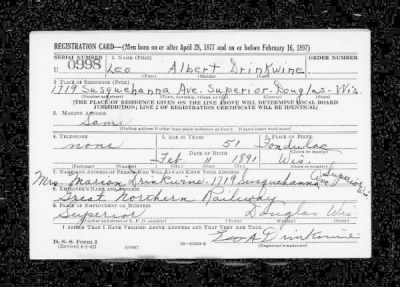 REGISTRATION CARD—(Men born on or after April 28, 1877 and on or before February 16, 1897)
SERIAL NUMBER 1. NAME (Print) ORDER NUMBER
U 0998 Leo Albert Drinkwine
(First) (Middle) (Last)
2. PLACE OF RESIDENCE (Print)
1719 Susquehanna Ave. Superior-Douglas-Wis
(Number and street) (Town, township, village, or city) (County) (State)
[THE PLACE OF RESIDENCE GIVEN ON THE LINE ABOVE WILL DETERMINE LOCAL BOARD
JURISDICTION; LINE 2 OF REGISTRATION CERTIFICATE WILL BE IDENTICAL]
3. MAILING ADDRESS
Same
[Mailing address if other than place indicated on line 2. If same insert word same]
4. TELEPHONE 5. AGE IN YEARS 6. PLACE OF BIRTH
none 51 Fondulac
DATE OF BIRTH
Feb 11 1891 Wis
7. NAME AND ADDRESS OF PERSON WHO WILL ALWAYS KNOW YOUR ADDRESS
Mrs. Marion Drinkwine-1719 Susquehanna Ave Superior
8. EMPLOYER'S NAME AND ADDRESS
Great Northern Railway
9. PLACE OF EMPLOYMENT OR BUSINESS
Superior Douglas Wis
(Number and street or R. F. D. number) (Town) (County) (State)
I AFFIRM THAT I HAVE VERIFIED ABOVE ANSWERS AND THAT THEY ARE TRUE.
D. S. S. Form 1
(Revised 4-1-42) (over) Leo A Drinkwine
(Registrant's signature)